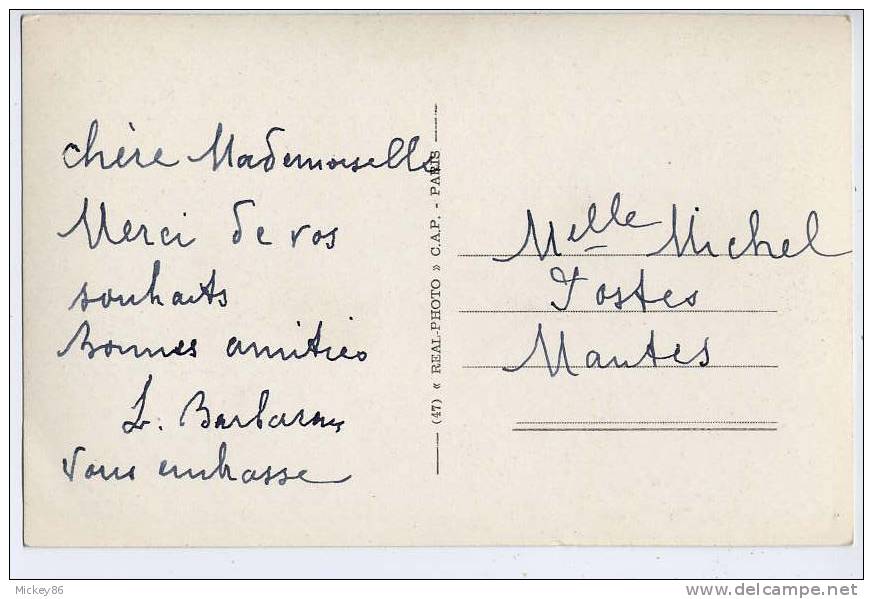 chère Mademoiselle
Merci de vos
souhaits
Bonnes amitiés
Vous embrasse
(47) « REAL-PHOTO » C.A.P. - PARIS
Melle Michel
Postes
Mantes
Mickey86
www.delcampe.net